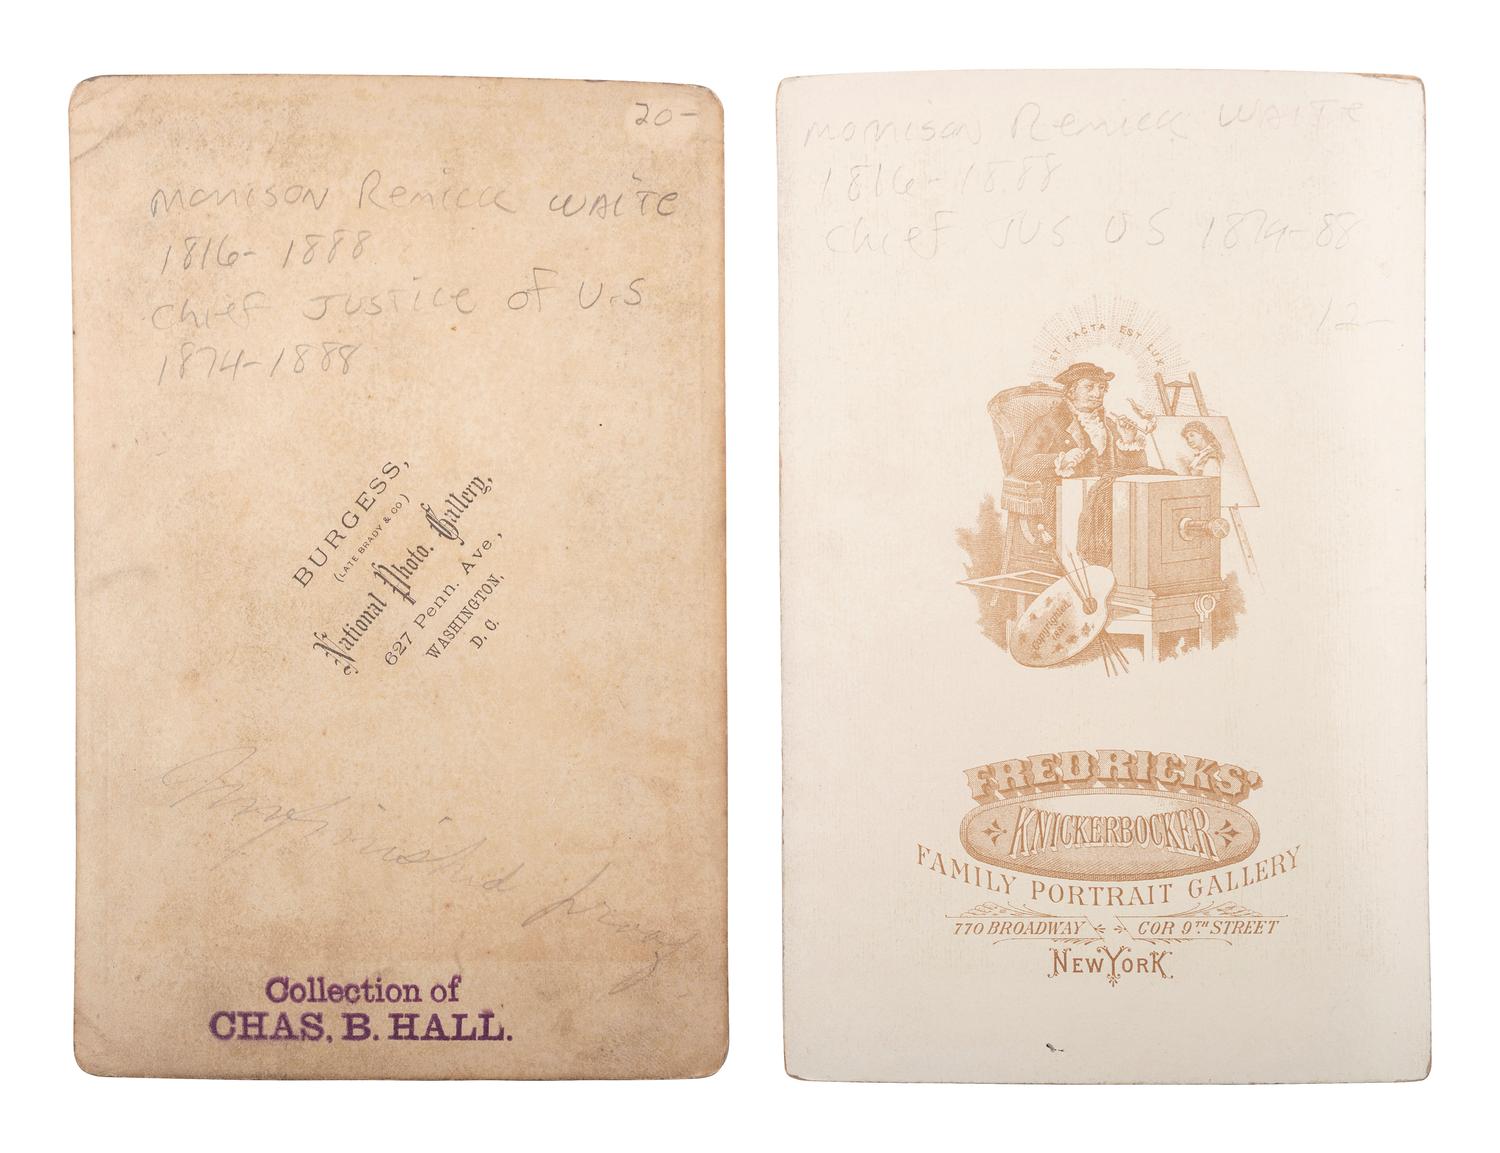 20-
Morrison Remick WAITE
1816-1888
Chief Justice of U.S
1874-1888
BURGESS,
(LATE BRADY & CO)
National Photo. Gallery,
627 Penn. Ave,
WASHINGTON,
D. C.
Collection of
CHAS. B. HALL.
Morrison Remick WAITE
1816-1888
Chief JUS US 1874-88
12-
ET FACTA EST LUX
Copyrighted
FREDRICKS'
KNICKERBOCKER
FAMILY PORTRAIT GALLERY
770 BROADWAY COR 9TH STREET
NEW YORK